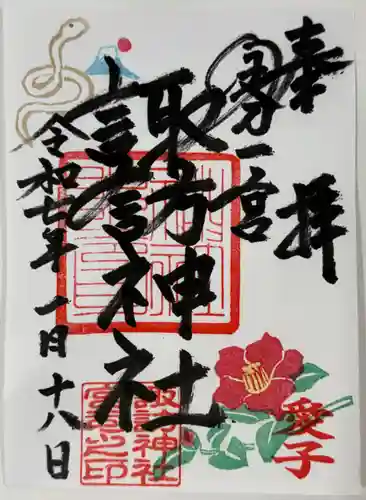 奉拝
一宮
諏訪神社
令和七年一月十八日
諏訪神社
宮司之印
愛子